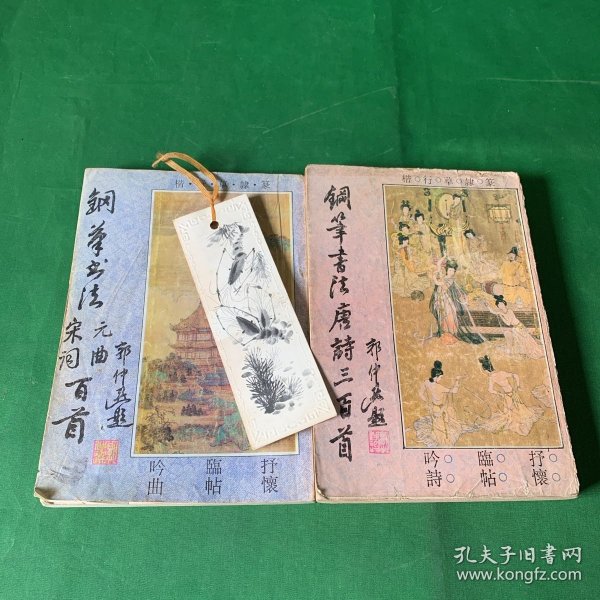 楷·行·草·隸·篆
鋼筆书法
元曲
宋词
百首
郭仲選題
吟曲
臨帖
抒懷
楷○行○草○隸○篆
鋼筆書法唐詩三百首
郭仲選題
吟詩
臨帖
抒懷
孔夫子旧书网
www.kongfz.com